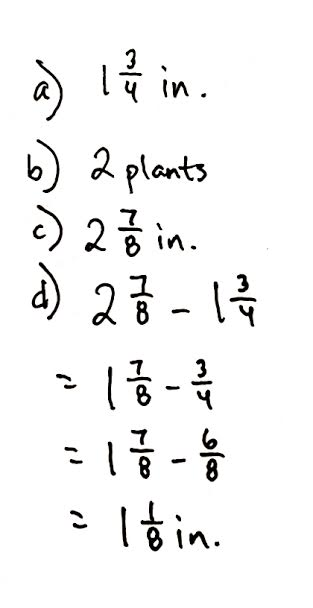 a) 1 3/4 in.
b) 2 plants
c) 2 7/8 in.
d) 2 7/8 - 1 3/4
= 1 7/8 - 3/4
= 1 7/8 - 6/8
= 1 1/8 in.